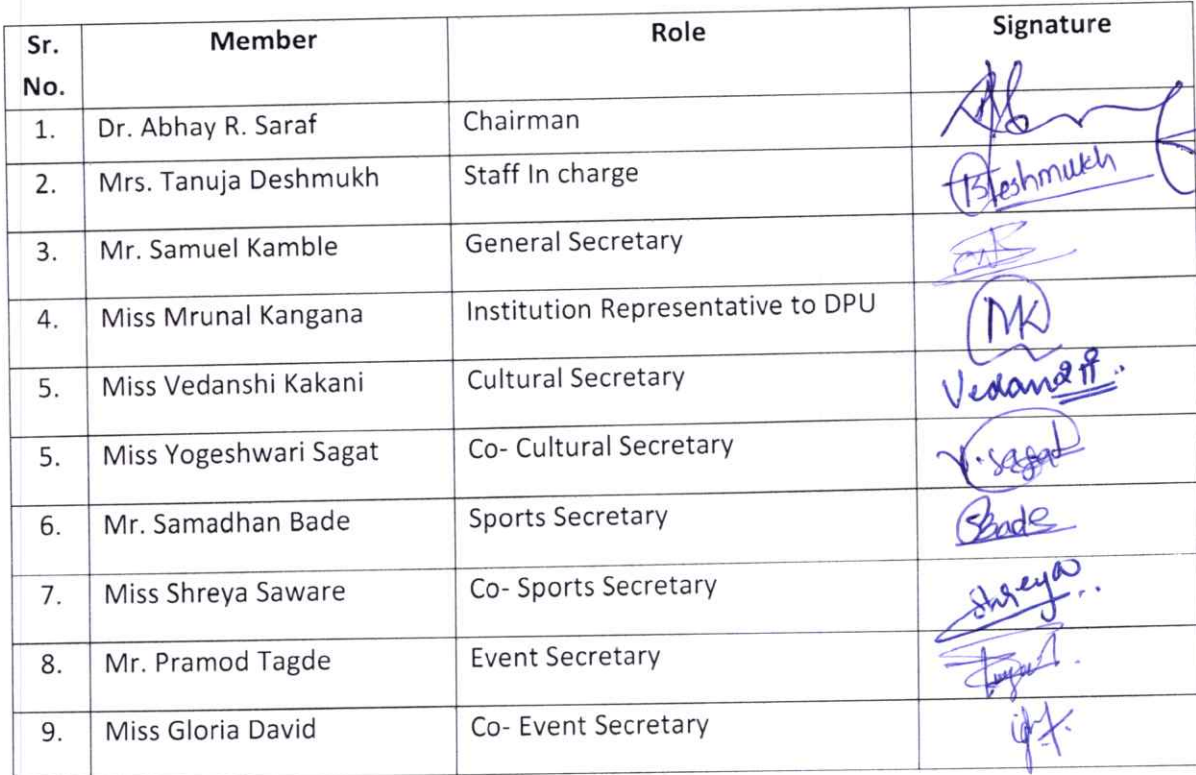 Sr. No. Member Role Signature
1. Dr. Abhay R. Saraf Chairman
2. Mrs. Tanuja Deshmukh Staff In charge Deshmukh
3. Mr. Samuel Kamble General Secretary
4. Miss Mrunal Kangana Institution Representative to DPU MK
5. Miss Vedanshi Kakani Cultural Secretary
5. Miss Yogeshwari Sagat Co- Cultural Secretary Y.sagat
6. Mr. Samadhan Bade Sports Secretary SBade
7. Miss Shreya Saware Co- Sports Secretary Shreya
8. Mr. Pramod Tagde Event Secretary
9. Miss Gloria David Co- Event Secretary